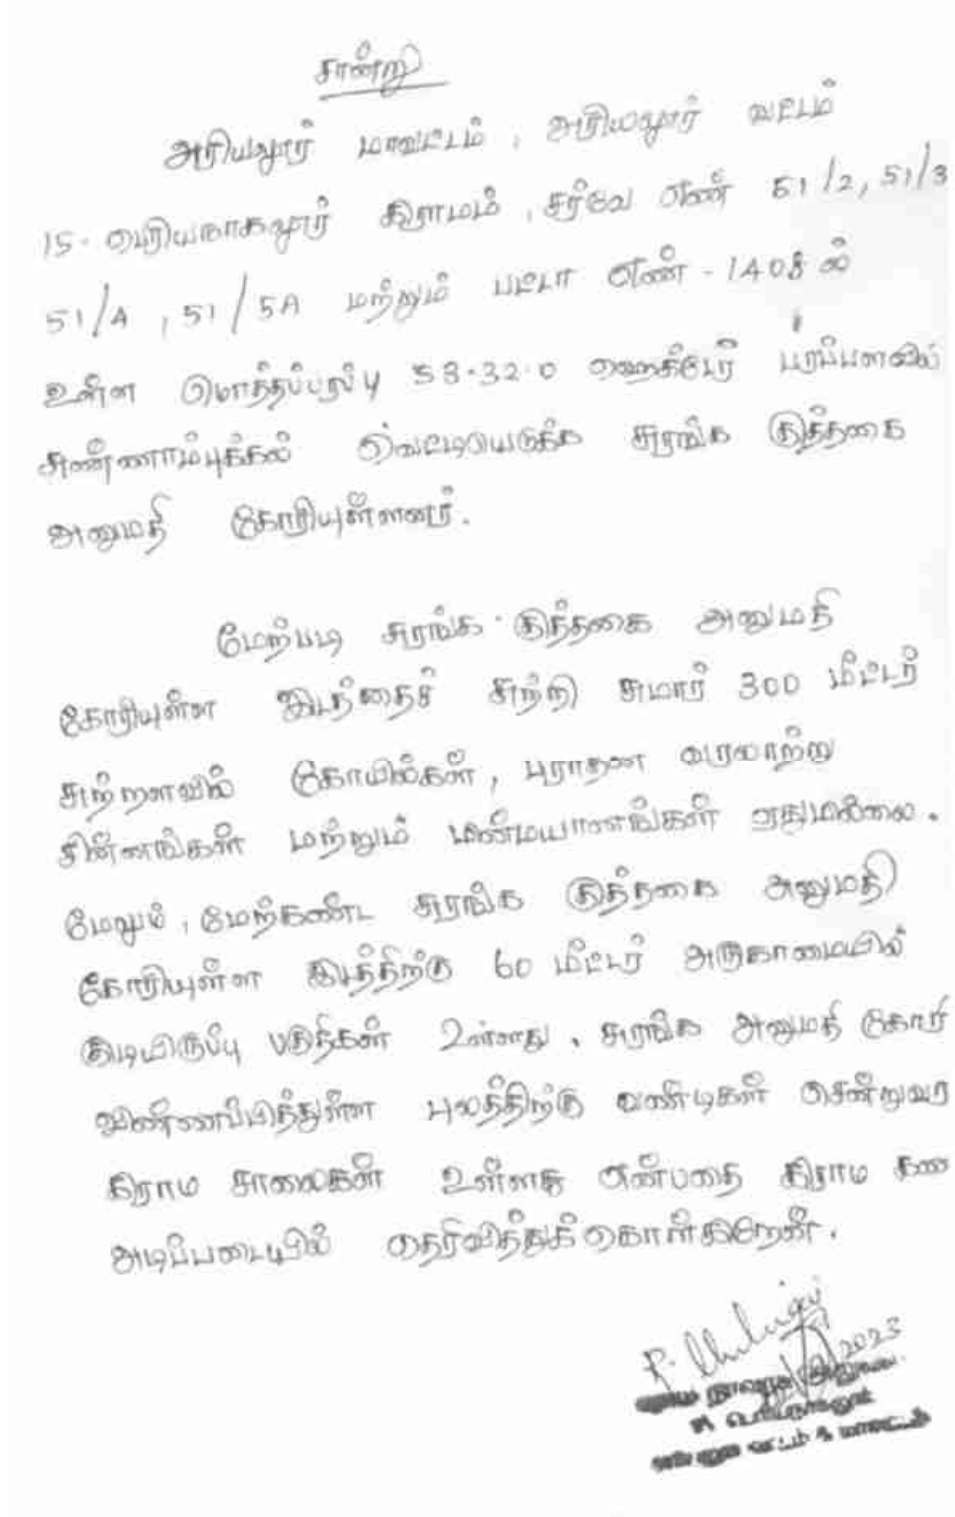 சான்று
அரியலூர் மாவட்டம், அரியலூர் வட்டம்
15. பெரியநாகலூர் கிராமம், சர்வே எண் 51/2, 51/3
51/4, 51/5A மற்றும் பட்டா எண் - 1408 ல்
உள்ள மொத்தப்பரப்பு 53.32.0 ஹெக்டேர் பரப்பளவில்
சுண்ணாம்புக்கல் வெட்டியெடுக்க சுரங்க குத்தகை
அனுமதி கோரியுள்ளனர்.
மேற்படி சுரங்க குத்தகை அனுமதி
கோரியுள்ள இடத்தைச் சுற்றி சுமார் 300 மீட்டர்
சுற்றளவில் கோயில்கள், புராதன வரலாற்று
சின்னங்கள் மற்றும் மண்மயானங்கள் ஏதுமில்லை.
மேலும், மேற்கண்ட சுரங்க குத்தகை அனுமதி
கோரியுள்ள இடத்திற்கு 60 மீட்டர் அருகாமையில்
குடியிருப்பு பகுதிகள் உள்ளது. சுரங்க அனுமதி கோரி
விண்ணப்பித்துள்ள புலத்திற்கு வண்டிகள் சென்றுவர
கிராம சாலைகள் உள்ளது என்பதை கிராம கண
அடிப்படையில் தெரிவித்துக்கொள்கிறேன்.
2023
கிராம நிர்வாக அலுவலர்
பெரியநாகலூர்
வட்டம் & மாவட்டம்